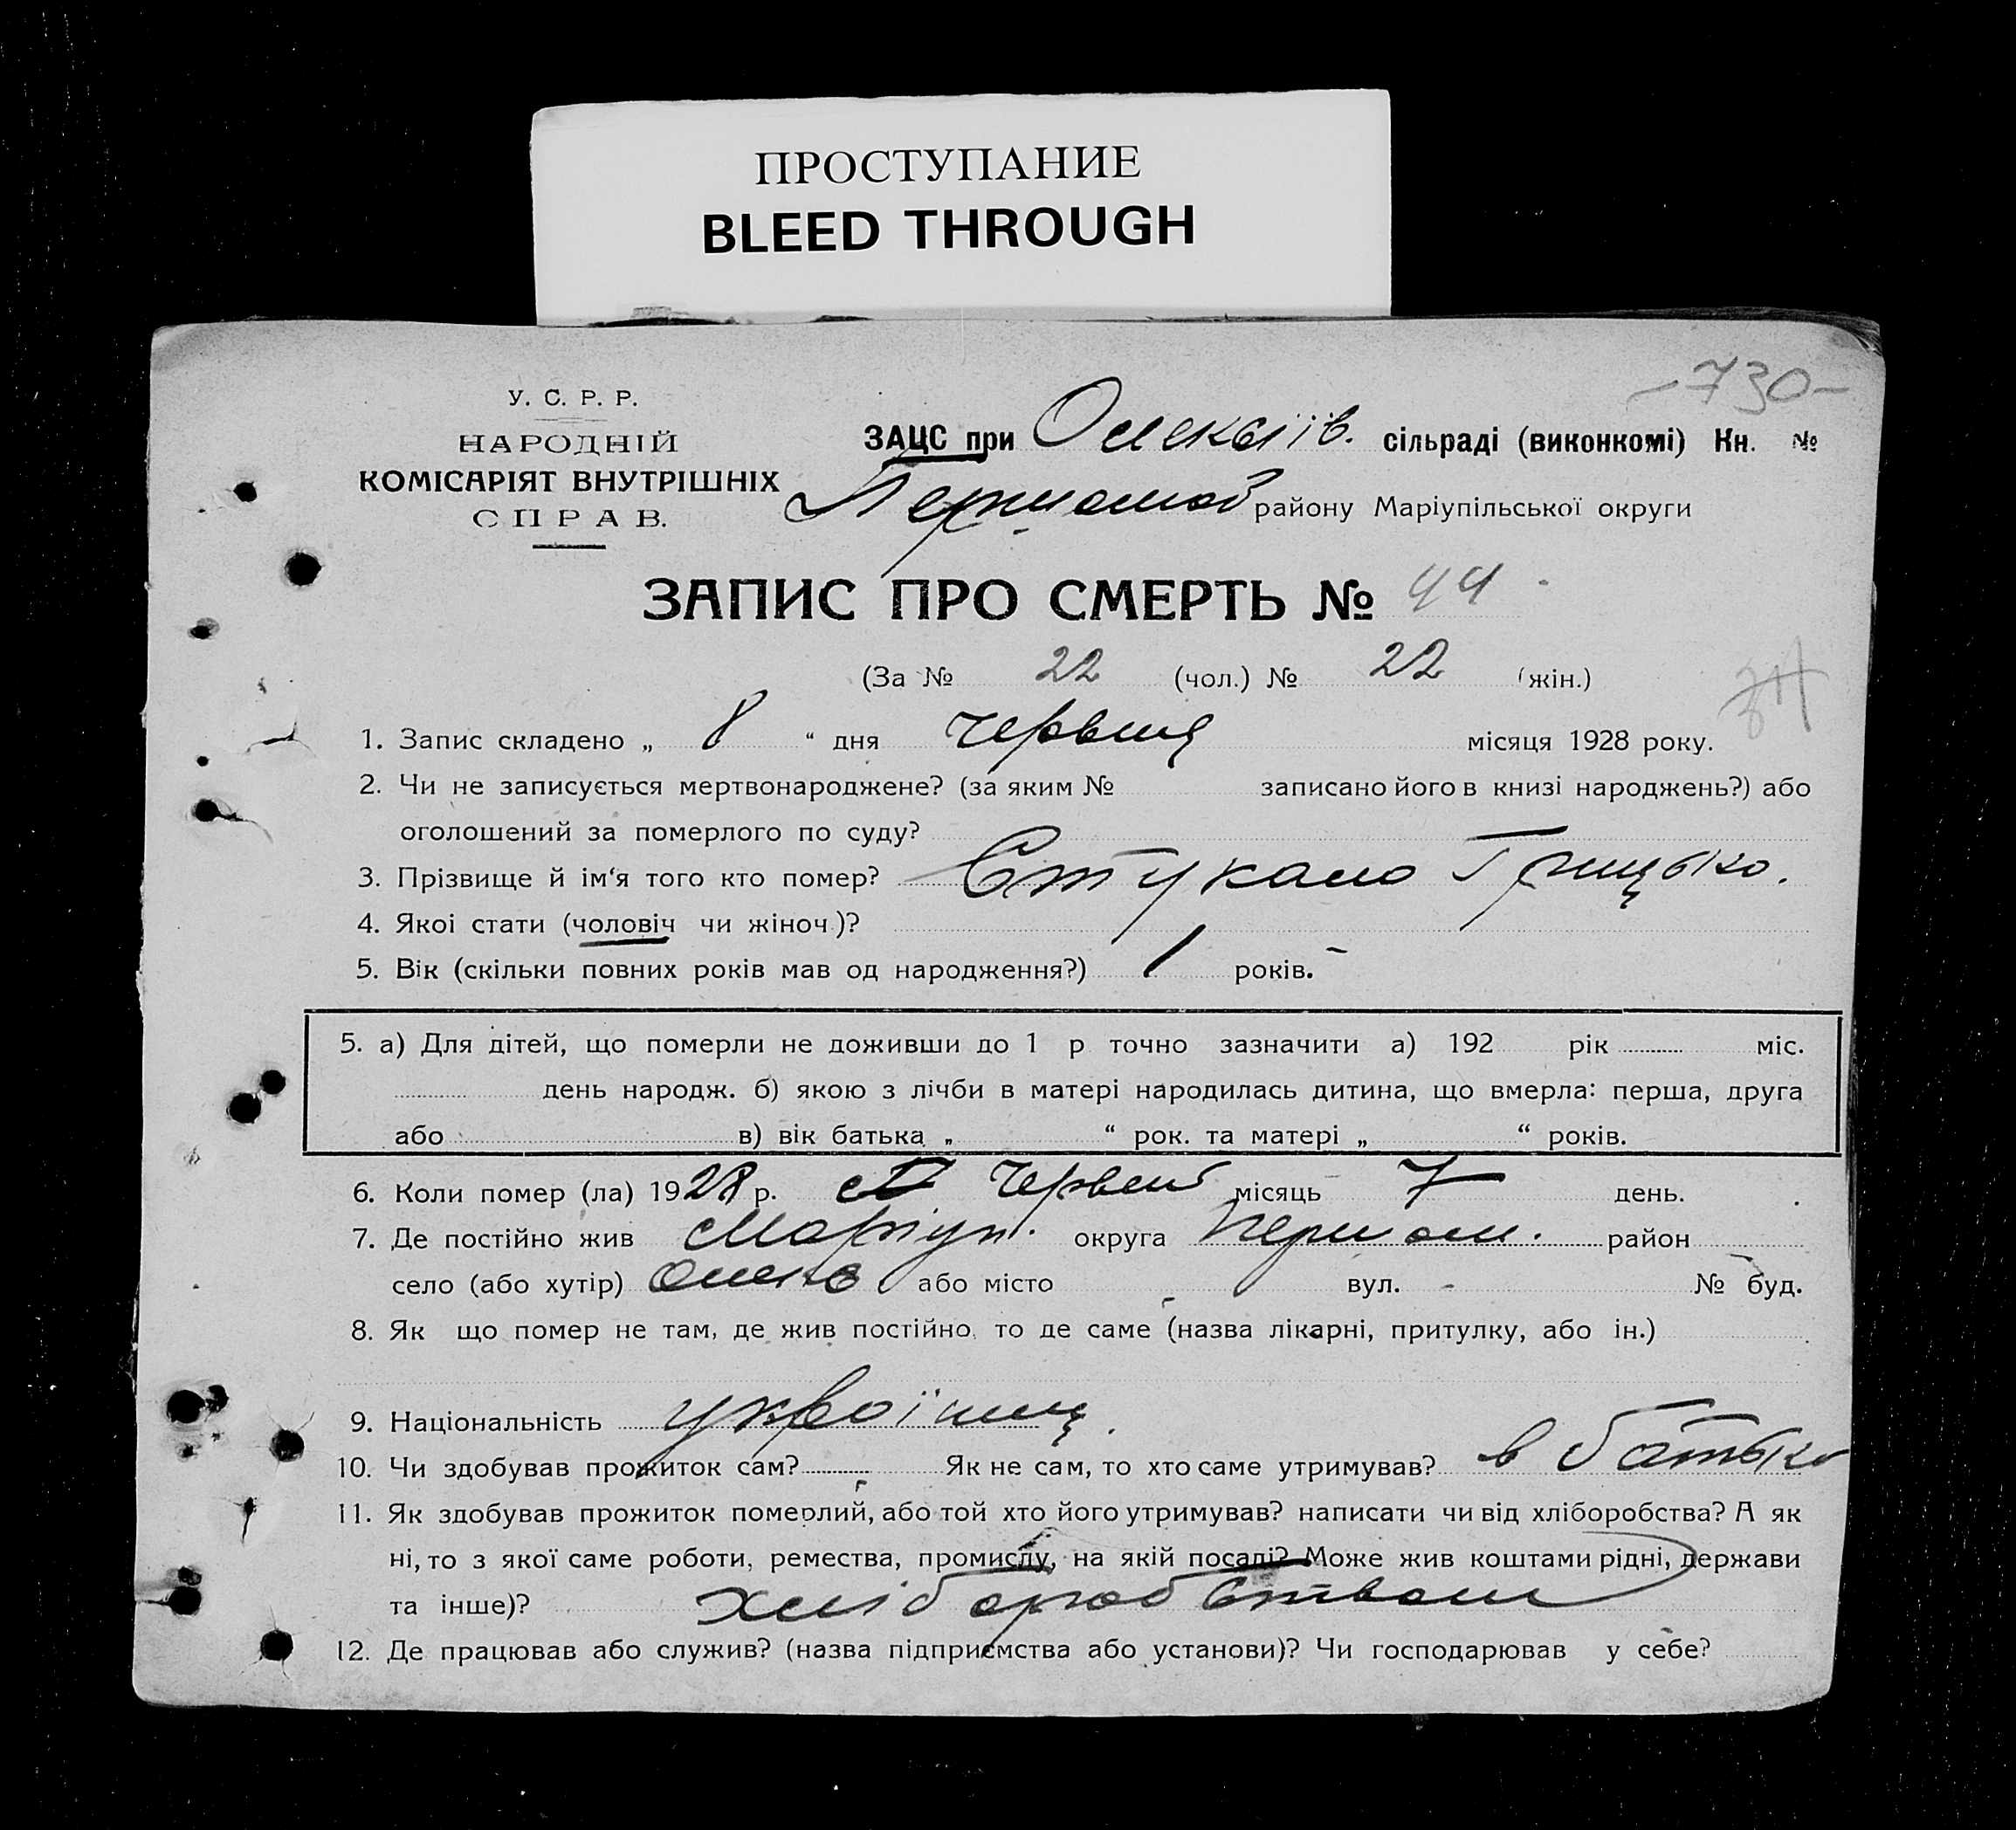 ПРОСТУПАНИЕ
BLEED THROUGH
-730-
У. С. Р. Р.
НАРОДНІЙ
КОМІСАРІЯТ ВНУТРІШНІХ
СПРАВ.
ЗАЦС при Олексіїв. сільраді (виконкомі) Кн. №
Першотов району Маріупільської округи
ЗАПИС ПРО СМЕРТЬ № 44
(За № 22 (чол.) № 22 (жін.)
1. Запис складено „ 8 “ дня червня місяця 1928 року.
2. Чи не записується мертвонароджене? (за яким № записано його в книзі народжень?) або
оголошений за померлого по суду?
3. Прізвище й ім‘я того кто помер? Стукало Грицько.
4. Якоі стати (чоловіч чи жіноч.)?
5. Вік (скільки повних років мав од народження?) 1 років.
5. а) Для дітей, що померли не доживши до 1 р точно зазначити а) 192 рік міс.
день народж. б) якою з лічби в матері народилась дитина, що вмерла: перша, друга
або в) вік батька „ “ рок. та матері „ “ років.
6. Коли помер (ла) 1928 р. Червень місяць 7 день.
7. Де постійно жив Маріуп. округа район
село (або хутір) Олекс або місто вул. - № буд.
8. Як що помер не там, де жив постійно, то де саме (назва лікарні, притулку, або ін.)
9. Національність українец.
10. Чи здобував прожиток сам? Як не сам, то хто саме утримував? в батька
11. Як здобував прожиток померлий, або той хто його утримував? написати чи від хліборобства? А як
ні, то з якої саме роботи, ремества, промислу, на якій посаді? Може жив коштами рідні, держави
та інше)? хліборобством
12. Де працював або служив? (назва підприємства або установи)? Чи господарював у себе?